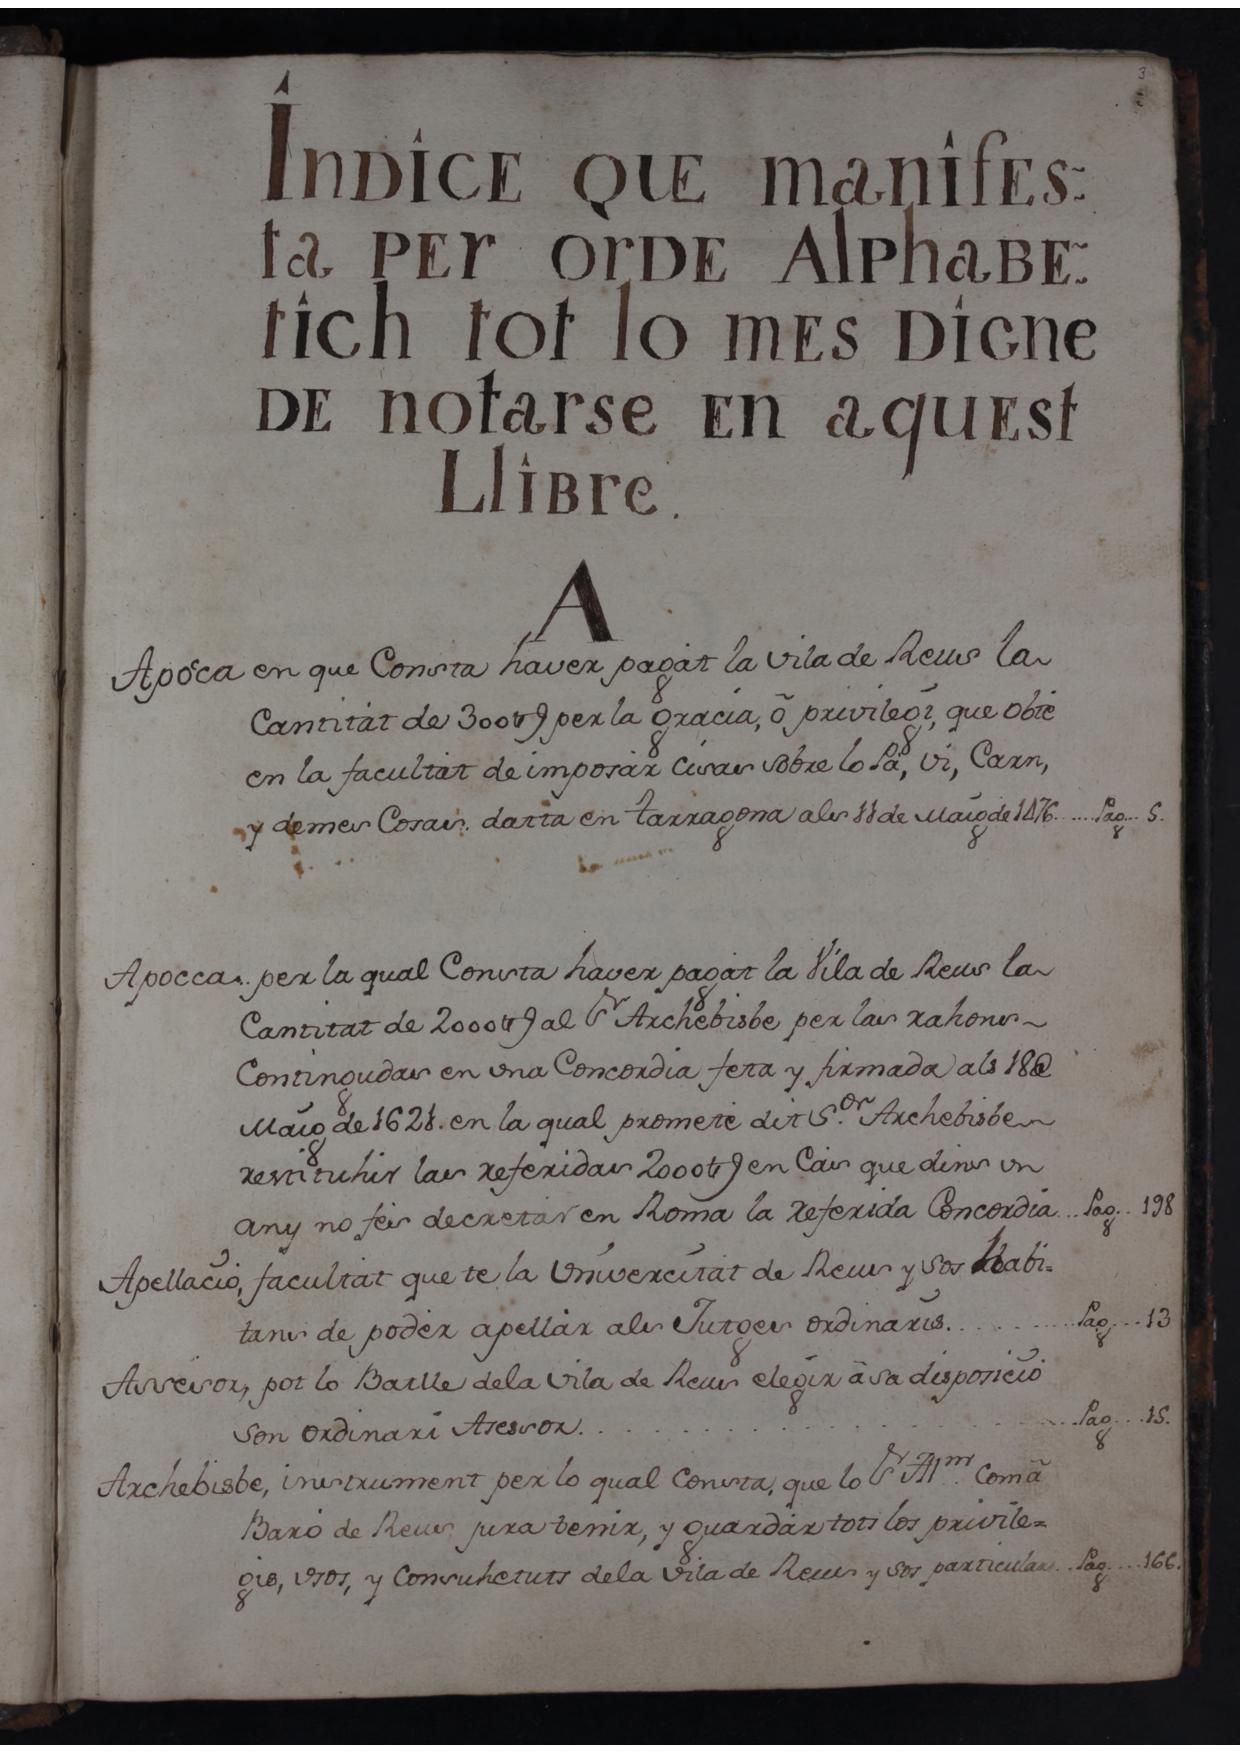 3
Índice que manifes:
ta per orde Alphabe:
tich tot lo mes digne
de notarse en aquest
Llibre.
A
Apoca en que Consta haver pagat la vila de Reus la
Cantitát de 300 ℔ per la gracia, ô privilegi, que obté
en la facultat de imposár Cisas sobre lo Pá, vi, Carn,
y demes Cosas. datta en tarragona als 11 de Maig de 1476. .... Pag... 5.
Apocca.. per la qual Consta haver pagát la Vila de Reus la
Cantitat de 2000 ℔ al Sr Archebisbe per las rahons
Contingudas en vna Concordia feta y firmada als 18 @
Maig de 1621. en la qual prometé dit S.or Archebisbe
restituhir las referidas 2000 ℔ en Cás que dins vn
any no fés decretar en Roma la referida Concordia... Pag.. 198
Apellació, facultát que te la Vniversitát de Reus y sos Habi=
tans de podér apellár als Jutges ordinaris. . . . . . . . Pag... 13
Assesor, pot lo Batlle dela vila de Reus elegir â sa disposició
son ordinari Asessor. . . . . . . . . . . . . . . Pag... 15.
Archebisbe, instrument per lo qual Consta, que lo Sr Illm. Com â
Baró de Reus jura tenir, y guardár tots los privile=
gis, vsos, y Consuhetuts dela vila de Reus y sos particulars.. Pag.... 166.